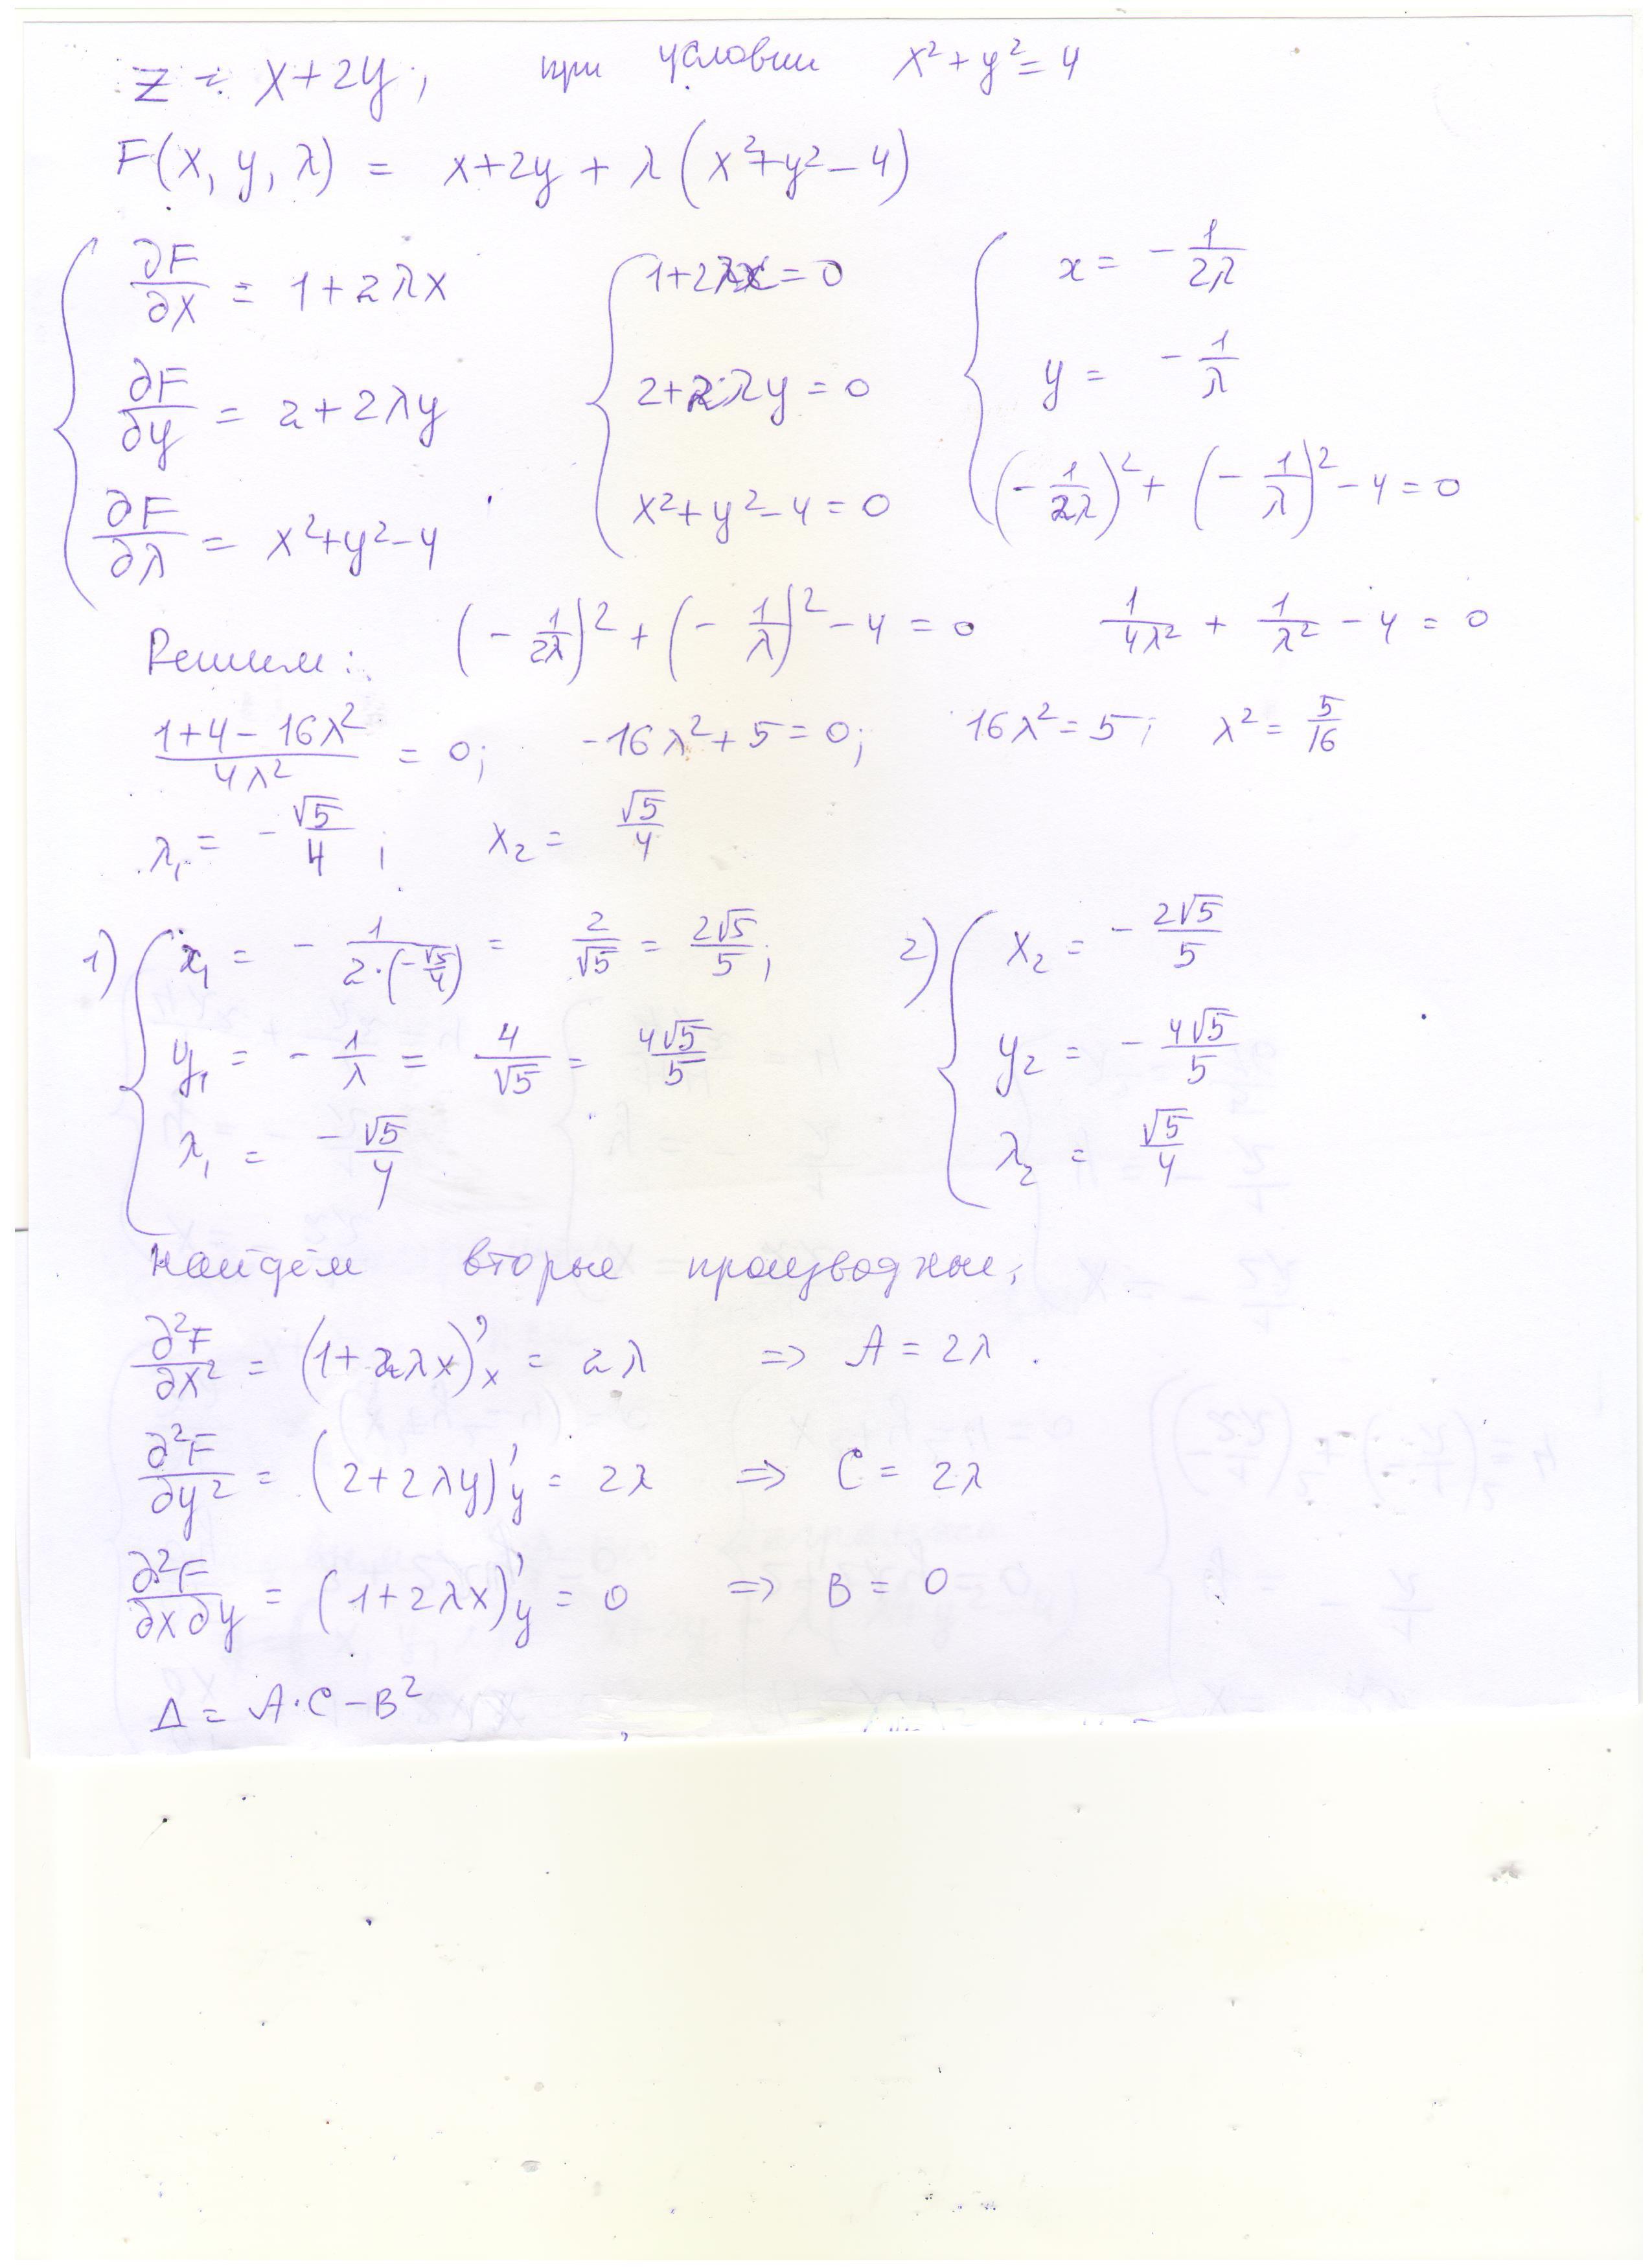 Z = x+2y, при условии x²+y²=4
F(x, y, λ) = x+2y + λ(x²+y²-4)
{ ∂F/∂x = 1+2λx { 1+2λx=0 { x = -1/2λ
∂F/∂y = 2+2λy 2+2λy=0 y = -1/λ
∂F/∂λ = x²+y²-4 x²+y²-4=0 (-1/2λ)²+(-1/λ)²-4=0
Решим: (-1/2λ)²+(-1/λ)²-4=0 1/4λ² + 1/λ² - 4 = 0
(1+4-16λ²)/4λ² = 0; -16λ²+5=0; 16λ²=5; λ²=5/16
λ₁ = -√5/4; x₂ = √5/4
1) { x₁ = -1/(2·(-√5/4)) = 2/√5 = 2√5/5; 2) { x₂ = -2√5/5
y₁ = -1/λ = 4/√5 = 4√5/5 y₂ = -4√5/5
λ₁ = -√5/4 λ₂ = √5/4
Найдём вторые производные,
∂²F/∂x² = (1+2λx)'x = 2λ => A = 2λ.
∂²F/∂y² = (2+2λy)'y = 2λ => C = 2λ
∂²F/∂x∂y = (1+2λx)'y = 0 => B = 0
Δ = A·C-B²